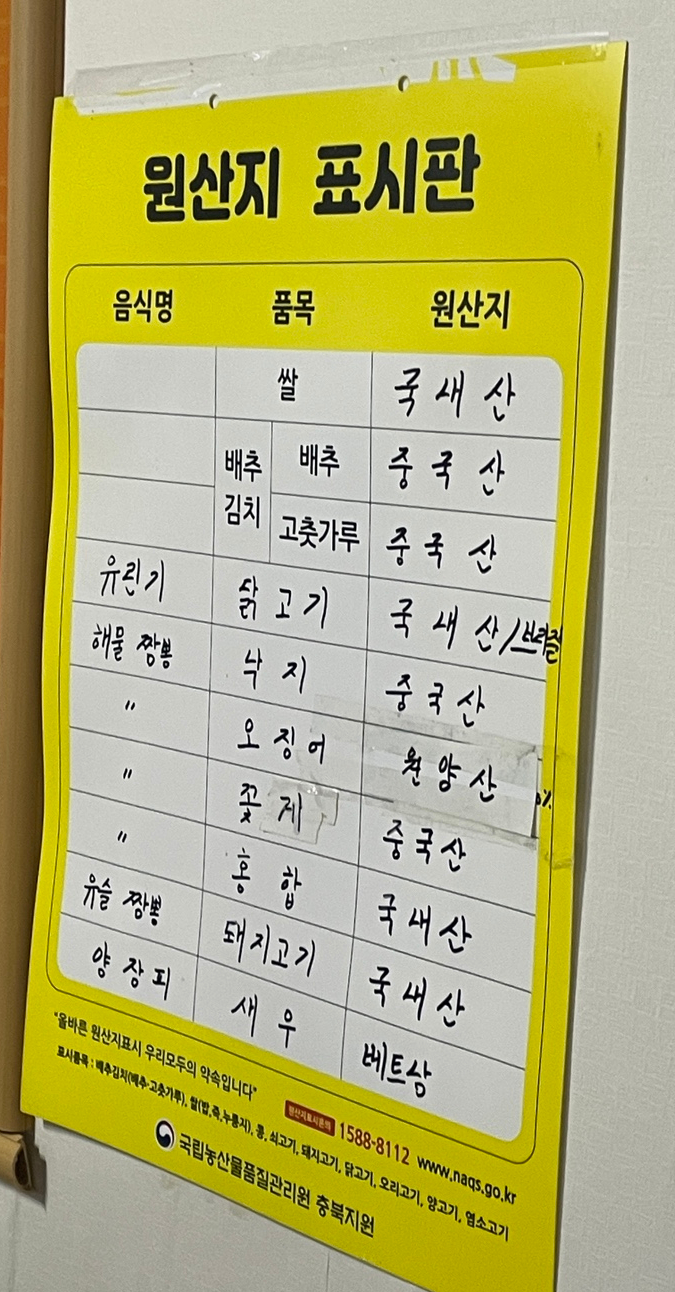 원산지 표시판
음식명 품목 원산지
쌀 국내산
배추김치 배추 중국산
고춧가루 중국산
유린기 닭고기 국내산/브라질
해물짬뽕 낙지 중국산
〃 오징어 원양산
〃 꽃게 중국산
〃 홍합 국내산
유슬짬뽕 돼지고기 국내산
양장피 새우 베트상
"올바른 원산지표시 우리모두의 약속입니다"
원산지표시문의 1588-8112 www.naqs.go.kr
표시품목 : 배추김치(배추·고춧가루), 쌀(밥,죽,누룽지), 콩, 쇠고기, 돼지고기, 닭고기, 오리고기, 양고기, 염소고기
국립농산물품질관리원 충북지원